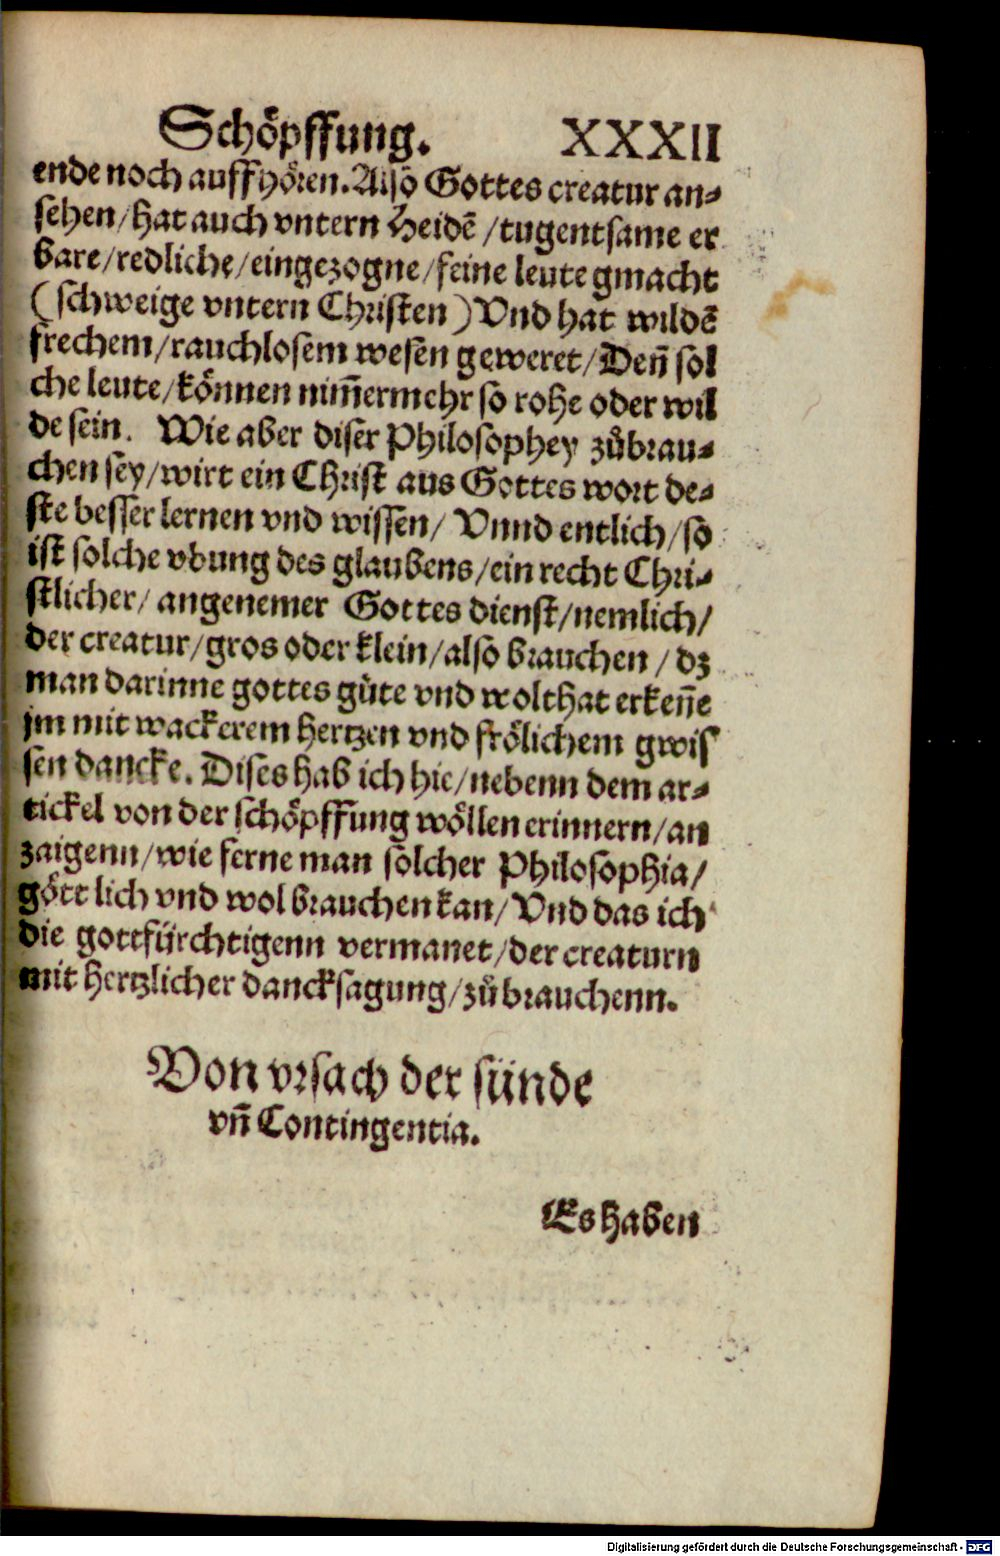 Schöpffung. XXXII
ende noch auffhören. Also Gottes creatur an⸗
sehen/hat auch vntern Heidē/tugentsame er
bare/redliche/eingezogne/feine leute gmacht
(schweige vntern Christen) Vnd hat wildē
frechem/rauchlosem wesen geweret/Deñ sol
che leute/können nim̃ermehr so rohe oder wil
de sein. Wie aber diser Philosophey zůbrau⸗
chen sey/wirt ein Christ aus Gottes wort de⸗
ste besser lernen vnd wissen/ Vnnd entlich/so
ist solche vbung des glaubens/ein recht Chri⸗
stlicher/ angenemer Gottes dienst/nemlich/
der creatur/gros oder klein/also brauchen/dz
man darinne gottes güte vnd wolthat erkeñe
jm mit wackerem hertzen vnd frölichem gwis
sen dancke. Dises hab ich hie/nebenn dem ar⸗
tickel von der schöpffung wöllen erinnern/an
zaigenn/wie ferne man solcher Philosophia/
gött lich vnd wol brauchen kan/Vnd das ich
die gottfürchtigenn vermanet/der creaturn
mit hertzlicher dancksagung/zůbrauchenn.
Von vrsach der sünde
vñ Contingentia.
Es haben
Digitalisierung gefördert durch die Deutsche Forschungsgemeinschaft - DFG